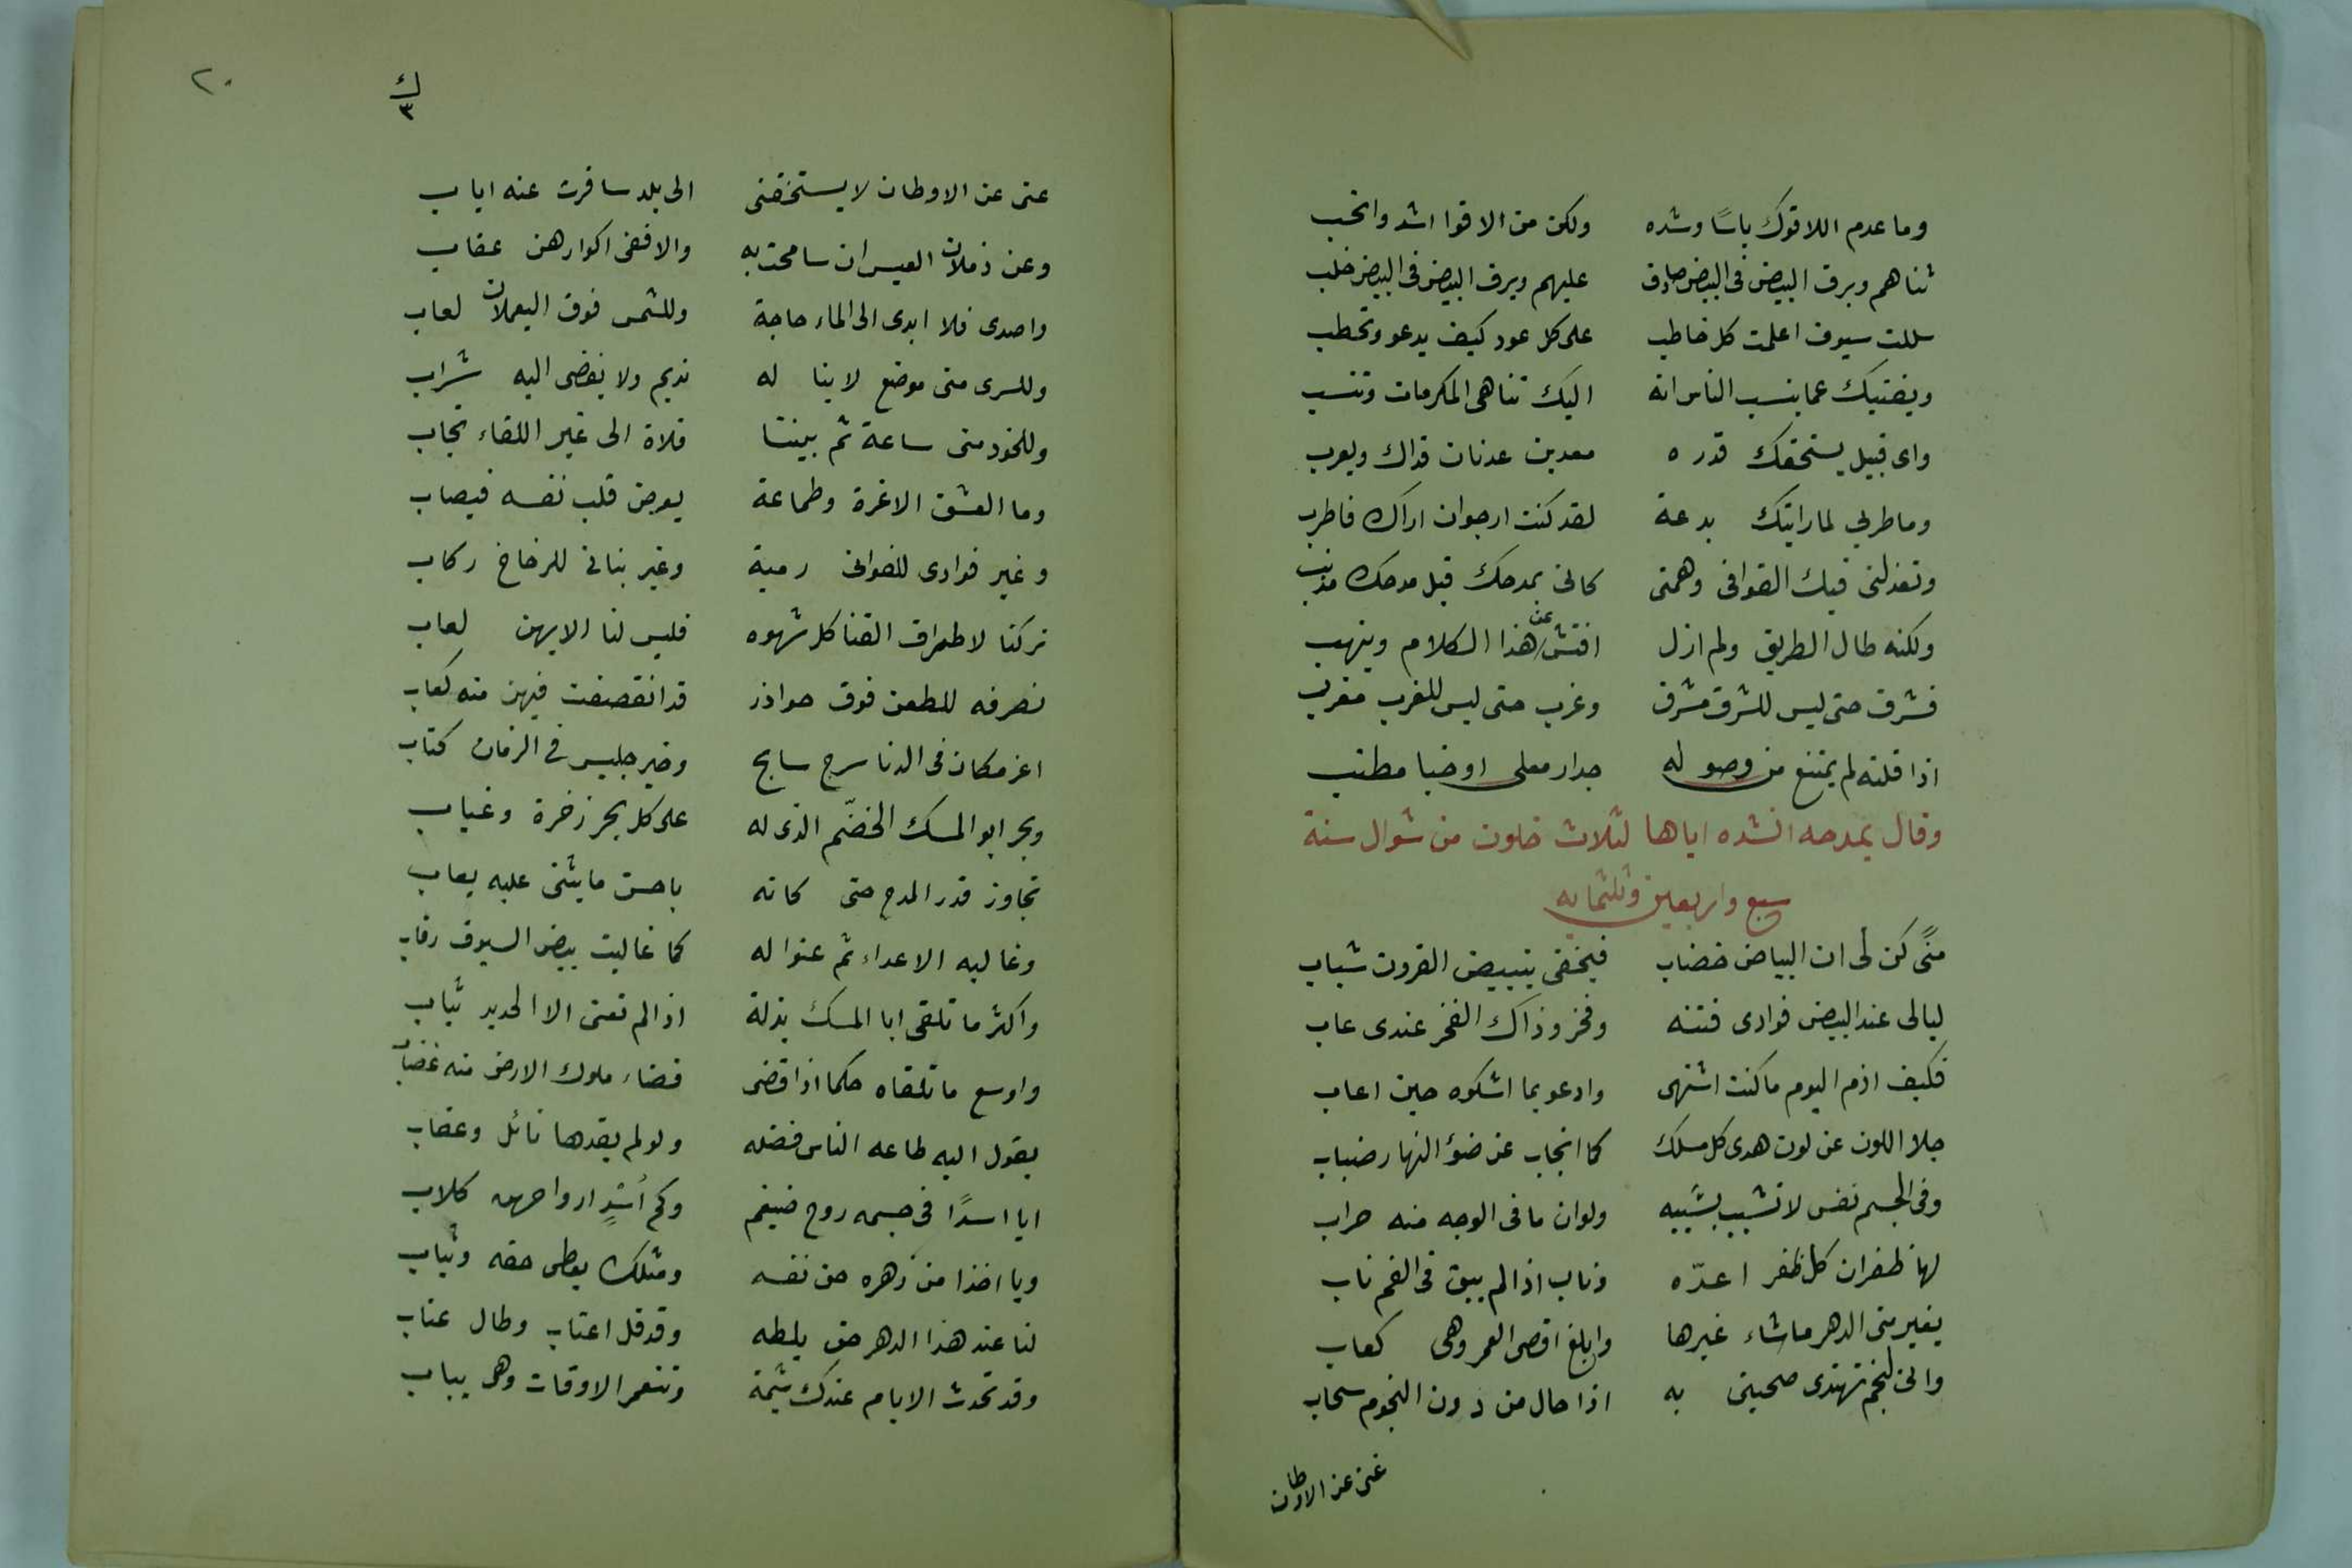 وما عدم اللاقوك باسًا وشده ولكن من الاقوا اشد وانخب
ثناهم وبرق البيض فى البيض صادق عليهم وبرق البيض فى البيض خلب
سللت سيوف اعلمت كل خاطب على كل عود كيف يدعو وتخطب
ويغنيك عما ينسب الناس انه اليك تناهى المكرمات وتنسب
واى قبيل يستحقك قدره معد بن عدنان فداك ويعرب
وما طربى لما رايتك بدعة لقد كنت ارجوان اراك فاطرب
وتعذلنى فيك القوافى وهمتى كانى بمدحك قبل مدحك مذنب
ولكنه طال الطريق ولم ازل افتش عن هذا الكلام وينهب
فشرق حتى ليس للشرق مشرق وغرب حتى ليس للغرب مغرب
اذا قلته لم يمتنع من وصوله جدار معلى او خبا مطنب
وقال يمدحه انشده اياها لثلاث خلون من شوال سنة
سبع واربعين وثلثمايه
منًى كن لى ان البياض خضاب فيخفى بتبييض القرون شباب
ليالى عند البيض فوادى فتنه وفخر وذاك الفخر عندى عاب
فكيف اذم اليوم ما كنت اشتهى وادعو بما اشكوه حين اعاب
جلا اللون عن لون هدى كل مسلك كما انجاب عن ضؤ النهار ضباب
وفى الجسم نفس لا تشيب بشيبه ولوان ما فى الوجه منه حراب
لها ظفران كل ظفر اعدّه وناب اذا لم يبق فى الفم ناب
يغير منى الدهر ما شاء غيرها وابلغ اقصى العمر وهى كعاب
وانى لنجم تهتدى صحبتى به اذا حال من دون النجوم سحاب
غنى عن الاوطان
٢٠
ك
٣
عنى عن الاوطان لا يستخفنى الى بلد سافرت عنه اياب
وعن ذملان العيس ان سامحت به والا ففى اكوارهن عقاب
واصدى فلا ابدى الى الماء حاجة وللشمس فوق اليعملات لعاب
وللسرى منى موضع لا ينا له نديم ولا يفضى اليه شراب
وللخود منى ساعة ثم بيننا فلاة الى غير اللقاء تجاب
وما العشق الا غرة وطماعة يعرض قلب نفسه فيصاب
وغير فوادى للغوانى رمية وغير بنانى للرخاخ ركاب
تركنا لاطراف القنا كل شهوه فليس لنا الا بهن لعاب
نصرفه للطعن فوق حواذر قد انقصفت فيهن منه كعاب
اعز مكان فى الدنا سرج سابح وخير جليس فى الزمان كتاب
وبحر ابو المسك الخضّم الذى له على كل بحر زخرة وعباب
تجاوز قدر المدح حتى كانه باحسن ما يثنى عليه يعاب
وغالبه الاعداء ثم عنوا له كما غالبت بيض السيوف رقاب
واكثر ما تلقى ابا المسك بذلة اذا لم تعنى الا الحديد ثياب
واوسع ما تلقاه حكما اذا قضى قضاء ملوك الارض منه غضاب
يقول اليه طاعه الناس فضله ولو لم يقدها نائل وعقاب
ايا اسدًا فى جسمه روح ضيغم وكم أسدٍ ارواحهن كلاب
ويا اخذا من دهره حق نفسه ومثلك يعطى حقه وثياب
لنا عند هذا الدهر حق يلطه وقد قل اعتاب وطال عتاب
وقد تحدث الايام عندك شيمة وتنعمر الاوقات وهى يباب